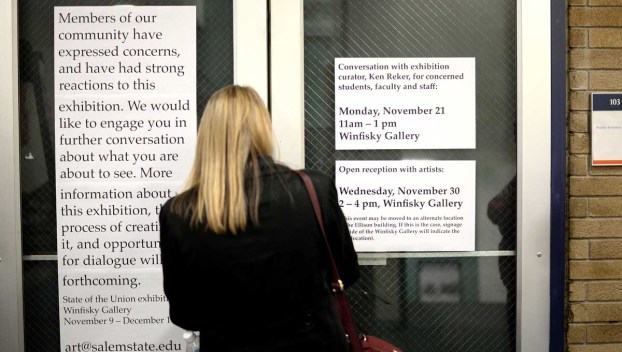 Members of our
community have
expressed concerns,
and have had strong
reactions to this
exhibition. We would
like to engage you in
further conversation
about what you are
about to see. More
information about
this exhibition, th
process of creati
it, and opportun
for dialogue wil
forthcoming.
State of the Union exhibit
Winfisky Gallery
November 9 – December 1
art@salemstate.edu
Conversation with exhibition
curator, Ken Reker, for concerned
students, faculty and staff:
Monday, November 21
11am – 1 pm
Winfisky Gallery
Open reception with artists:
Wednesday, November 30
2 – 4 pm, Winfisky Gallery
This event may be moved to an alternate location
the Ellison building. If this is the case, signage
side of the Winfisky Gallery will indicate the
location)
103